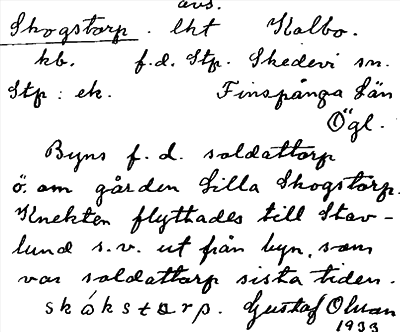 avs.
Skogstorp. lht Kalbo.
kb. f.d. Stp. Skedevi sn.
Stp: ek. Finspånga Län
Ögl.
Byns f. d. soldattorp
ö. om gården Lilla Skogstorp.
Knekten flyttades till Stav-
lund s.v. ut från byn, som
var soldattorp sista tiden.
skókstɷrp. Gustaf Olson
1933